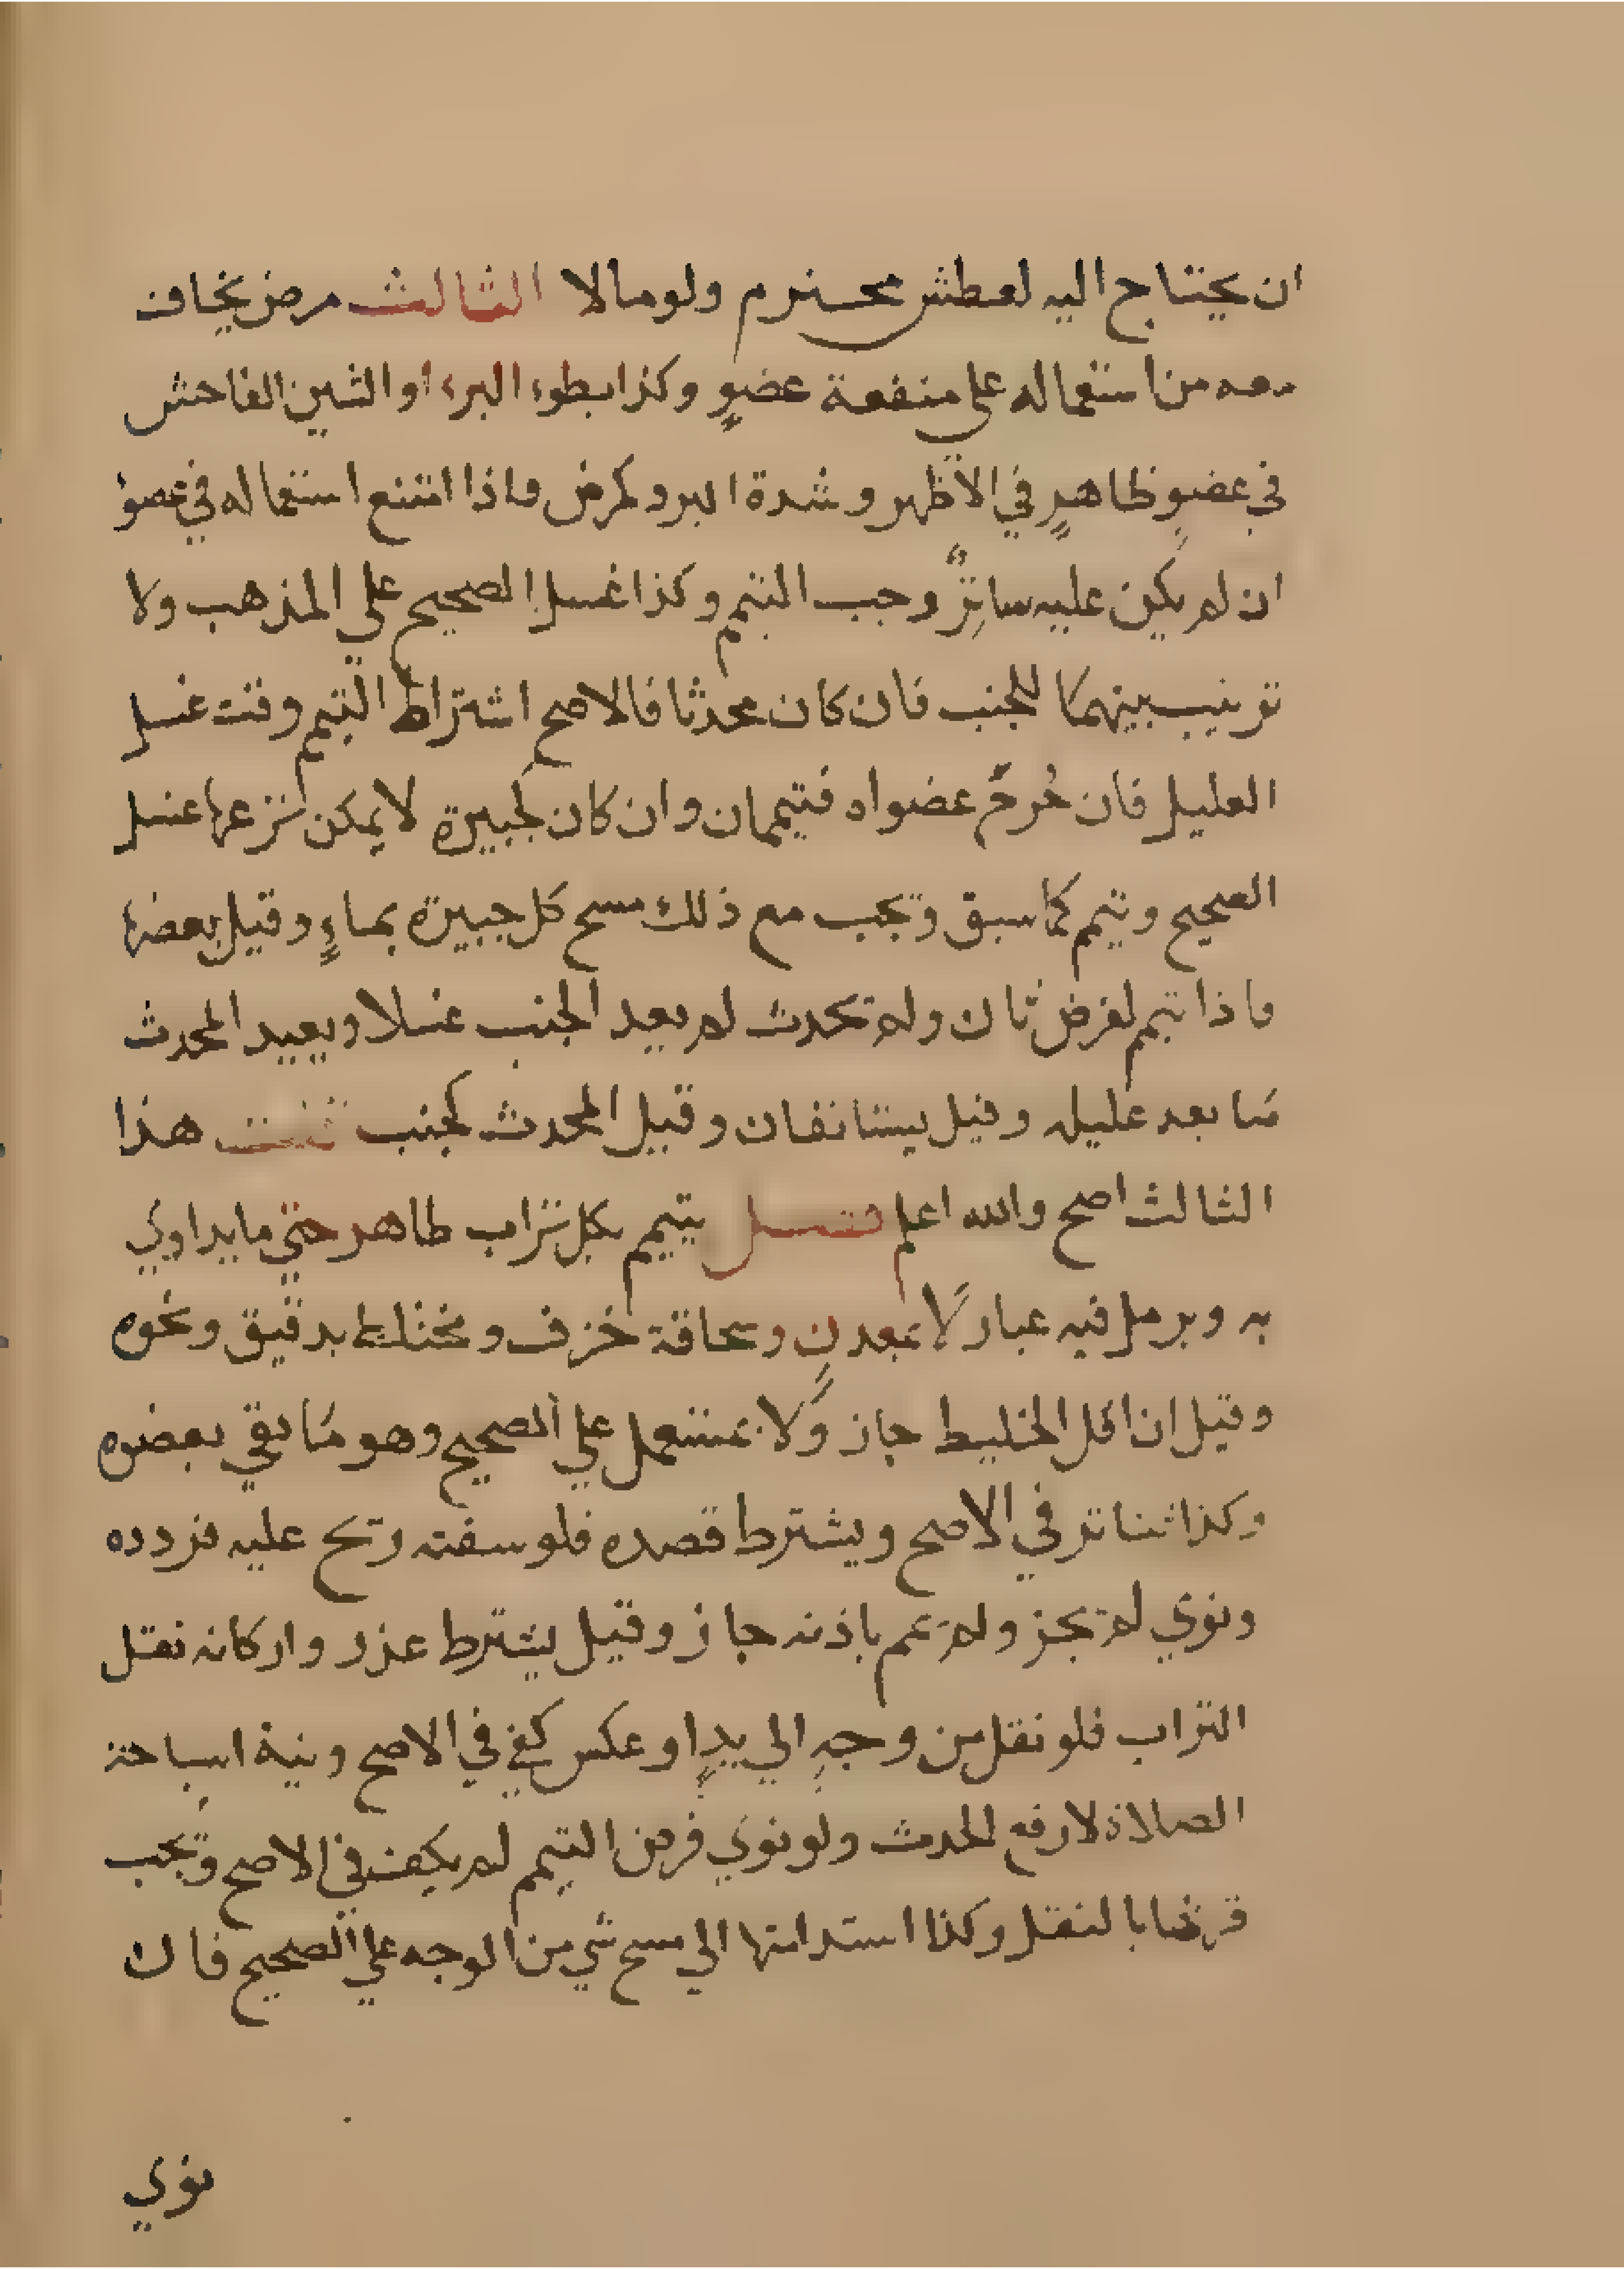 ان يحتاج اليه لعطش محترم ولو مالا الثالث مرض يخاف
معه من استعماله علي منفعة عضوٍ وكذا بطوء البرء او الشين الفاحش
في عضوٍ ظاهرٍ في الاظهر وشدة البرد كمرض واذا امتنع استعماله في عضو
ان لم يكن عليه ساترٌ وجب التيمم وكذا غسل الصحيح علي المذهب ولا
ترتيب بينهما للجنب فان كان محدثا فالاصح اشتراط التيمم وقت غسل
العليل فان جُرحَ عضواه فتيممان وان كان كجبيرة لا يمكن نزعها غسل
الصحيح وتيمم كما سبق ويجب مع ذلك مسح كل جبيرة بماءٍ وقيل بعضها
فاذا تيمم لفرض ثان ولم يحدث لم يعد الجنب غسلا ويعيد المحدث
مَا بعد عليله وقيل يستانفان وقيل المحدث كجنب قلت هذا
الثالث اصح والله اعلم فصل يتيمم بكل تراب طاهر حتي ما يداوي
به وبرمل فيه غبار لا بمعدنٍ وسحاقة خزف ومختلط بدقيق ونحوه
وقيل ان اقل الخليط جاز وَلا بمستعمل علي الصحيح وهو مَا بقي بعضوه
وكذا تناثر في الاصح ويشترط قصده فلو سفته ريح عليه فردده
ونوي لم يجز ولو يمم باذنه جاز وقيل يشترط عذر واركانه نقل
التراب فلو نقل من وجهٍ الي يدٍ او عكس كفي في الاصح ونية استباحة
الصلاة لا رفع الحدث ولو نوي فرض التيمم لم يكف في الاصح ويجب
قرنها بالنقل وكذا استدامتها الي مسح شي من الوجه علي الصحيح فان
نوي